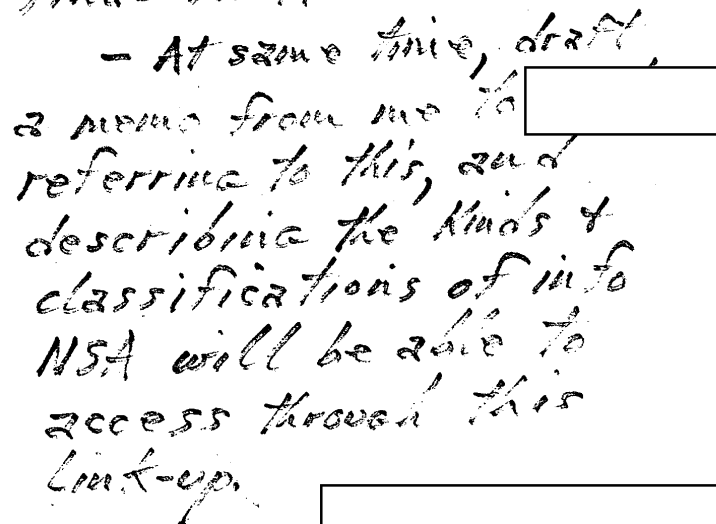 - At same time, draft,
a memo from me to
referring to this, and
describing the kinds &
classifications of info
NSA will be able to
access through this
link-up.